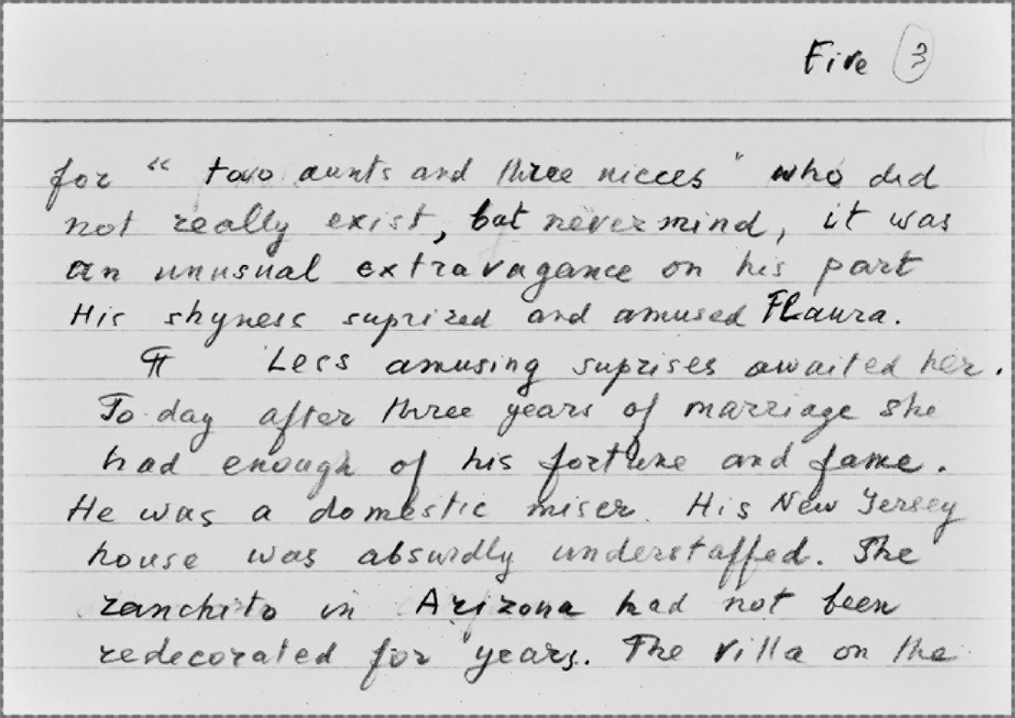 Five 3
for “ two aunts and three nieces ” who did
not really exist, but nevermind, it was
an unusual extravagance on his part
His shyness suprized and amused FLaura.
¶ Less amusing suprises awaited her.
To day after three years of marriage she
had enough of his fortune and fame.
He was a domestic miser. His New Jersey
house was absurdly understaffed. The
ranchito in Arizona had not been
redecorated for years. The villa on the